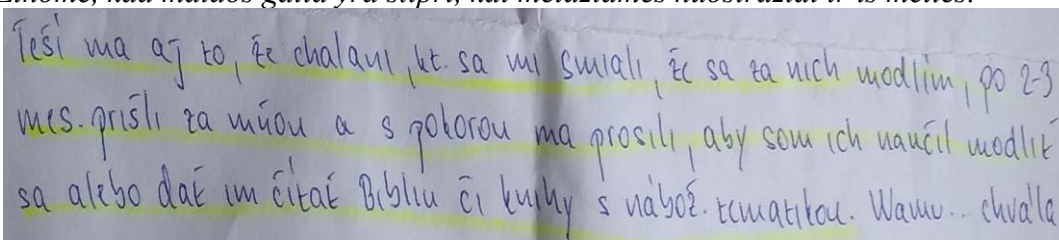 Žinome, kad maldos galia yra stipri, kai meldžiamės nuoširdžiai ir iš meilės.
Teší ma aj to, že chalani, kt. sa mi smiali, že sa za nich modlím, po 2-3
mes. prišli za mňou a s pokorou ma prosili, aby som ich naučil modliť
sa alebo dať im čítať Bibliu či knihy s nábož. tematikou. chvála